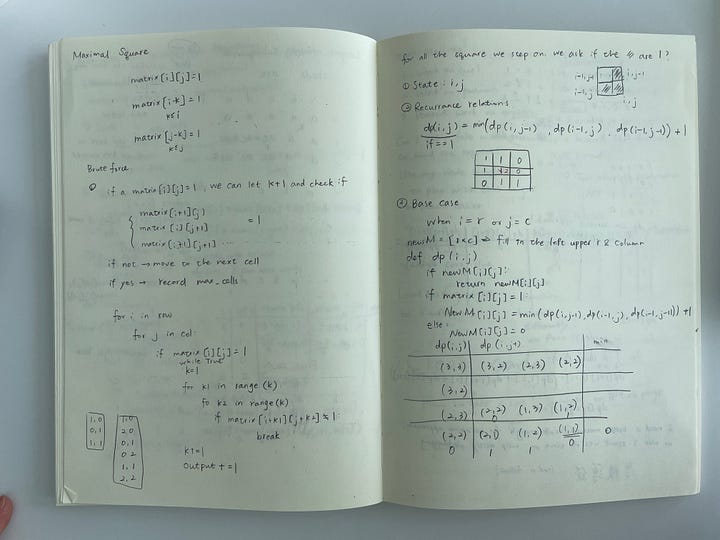 Maximal Square
matrix[i][j]=1
matrix[i-k] = 1
k≤i
matrix[j-k]=1
k≤j
Brute force.
if a matrix[i][j]=1, we can let k+1 and check if
matrix[i+1][j]
matrix[i][j+1] = 1
matrix[i+1][j+1] ...
if not → move to the next cell
if yes → record max_cells
for i in row
for j in col:
if matrix[i][j]=1
while True
k=1
for k1 in range(k)
fo k2 in range(k)
if matrix[i+k1][j+k2] ≠ 1:
break
k+=1
output +=1
1,0
0,1
1,1
1,0
2,0
0,1
0,2
1,1
2,2
for all the square we step on. we ask if the are 1?
① State: i,j
i-1,j-1 i,j-1
i-1,j
i,j
② Recurrance relations
dp(i,j) = min(dp(i,j-1), dp(i-1,j), dp(i-1,j-1)) + 1
if == 1
1 1 0
1 0
0 1 1
Base case
when i = r or j = c
newM = [r×c] → fill in the left upper r & column
def dp(i,j)
if newM[i][j]:
return newM[i][j]
if matrix[i][j] = 1:
NewM[i][j] = min(dp(i,j-1), dp(i-1,j), dp(i-1,j-1)) +1
else:
NewM[i][j] = 0
dp(i,j) min
(3,3) (3,2) (2,3) (2,2)
(3,2)
(2,3) (2,2) (1,3) (1,2)
(2,2) (2,1) (1,2) (1,1) 0
0 1 1 0